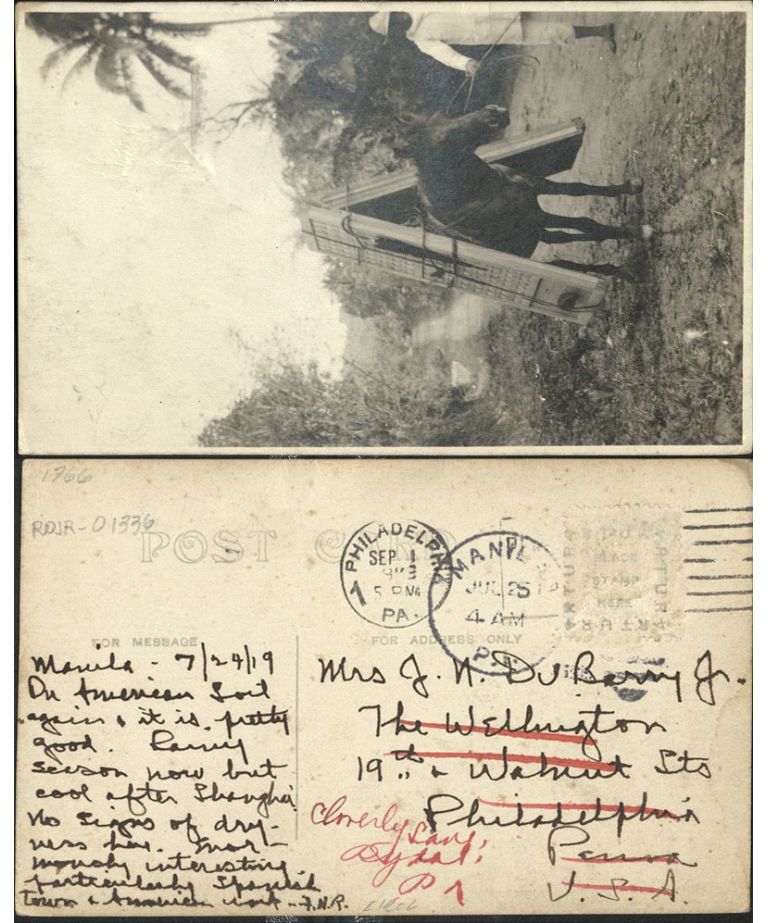 1766
RDJR-01336
POST CARD
PHILADELPHIA
SEP 1
5 PM
PA.
1
MANILA
JUL 25
4 AM
P.I.
PLACE
STAMP
HERE
ARTURA
FOR MESSAGE
FOR ADDRESS ONLY
Manila - 7/24/19
On American Soil
again & it is pretty
good. Rainy
season now but
cool after Shanghai.
No signs of dry-
ness here. Enor-
mously interesting
particularly Spanish
town & American work - F.N.R.
Mrs J. N. Du Barry Jr.
The Wellington
19th & Walnut Sts
Philadelphia
Penna
U.S.A.
Cloverly Lane
Rydal:
Pa